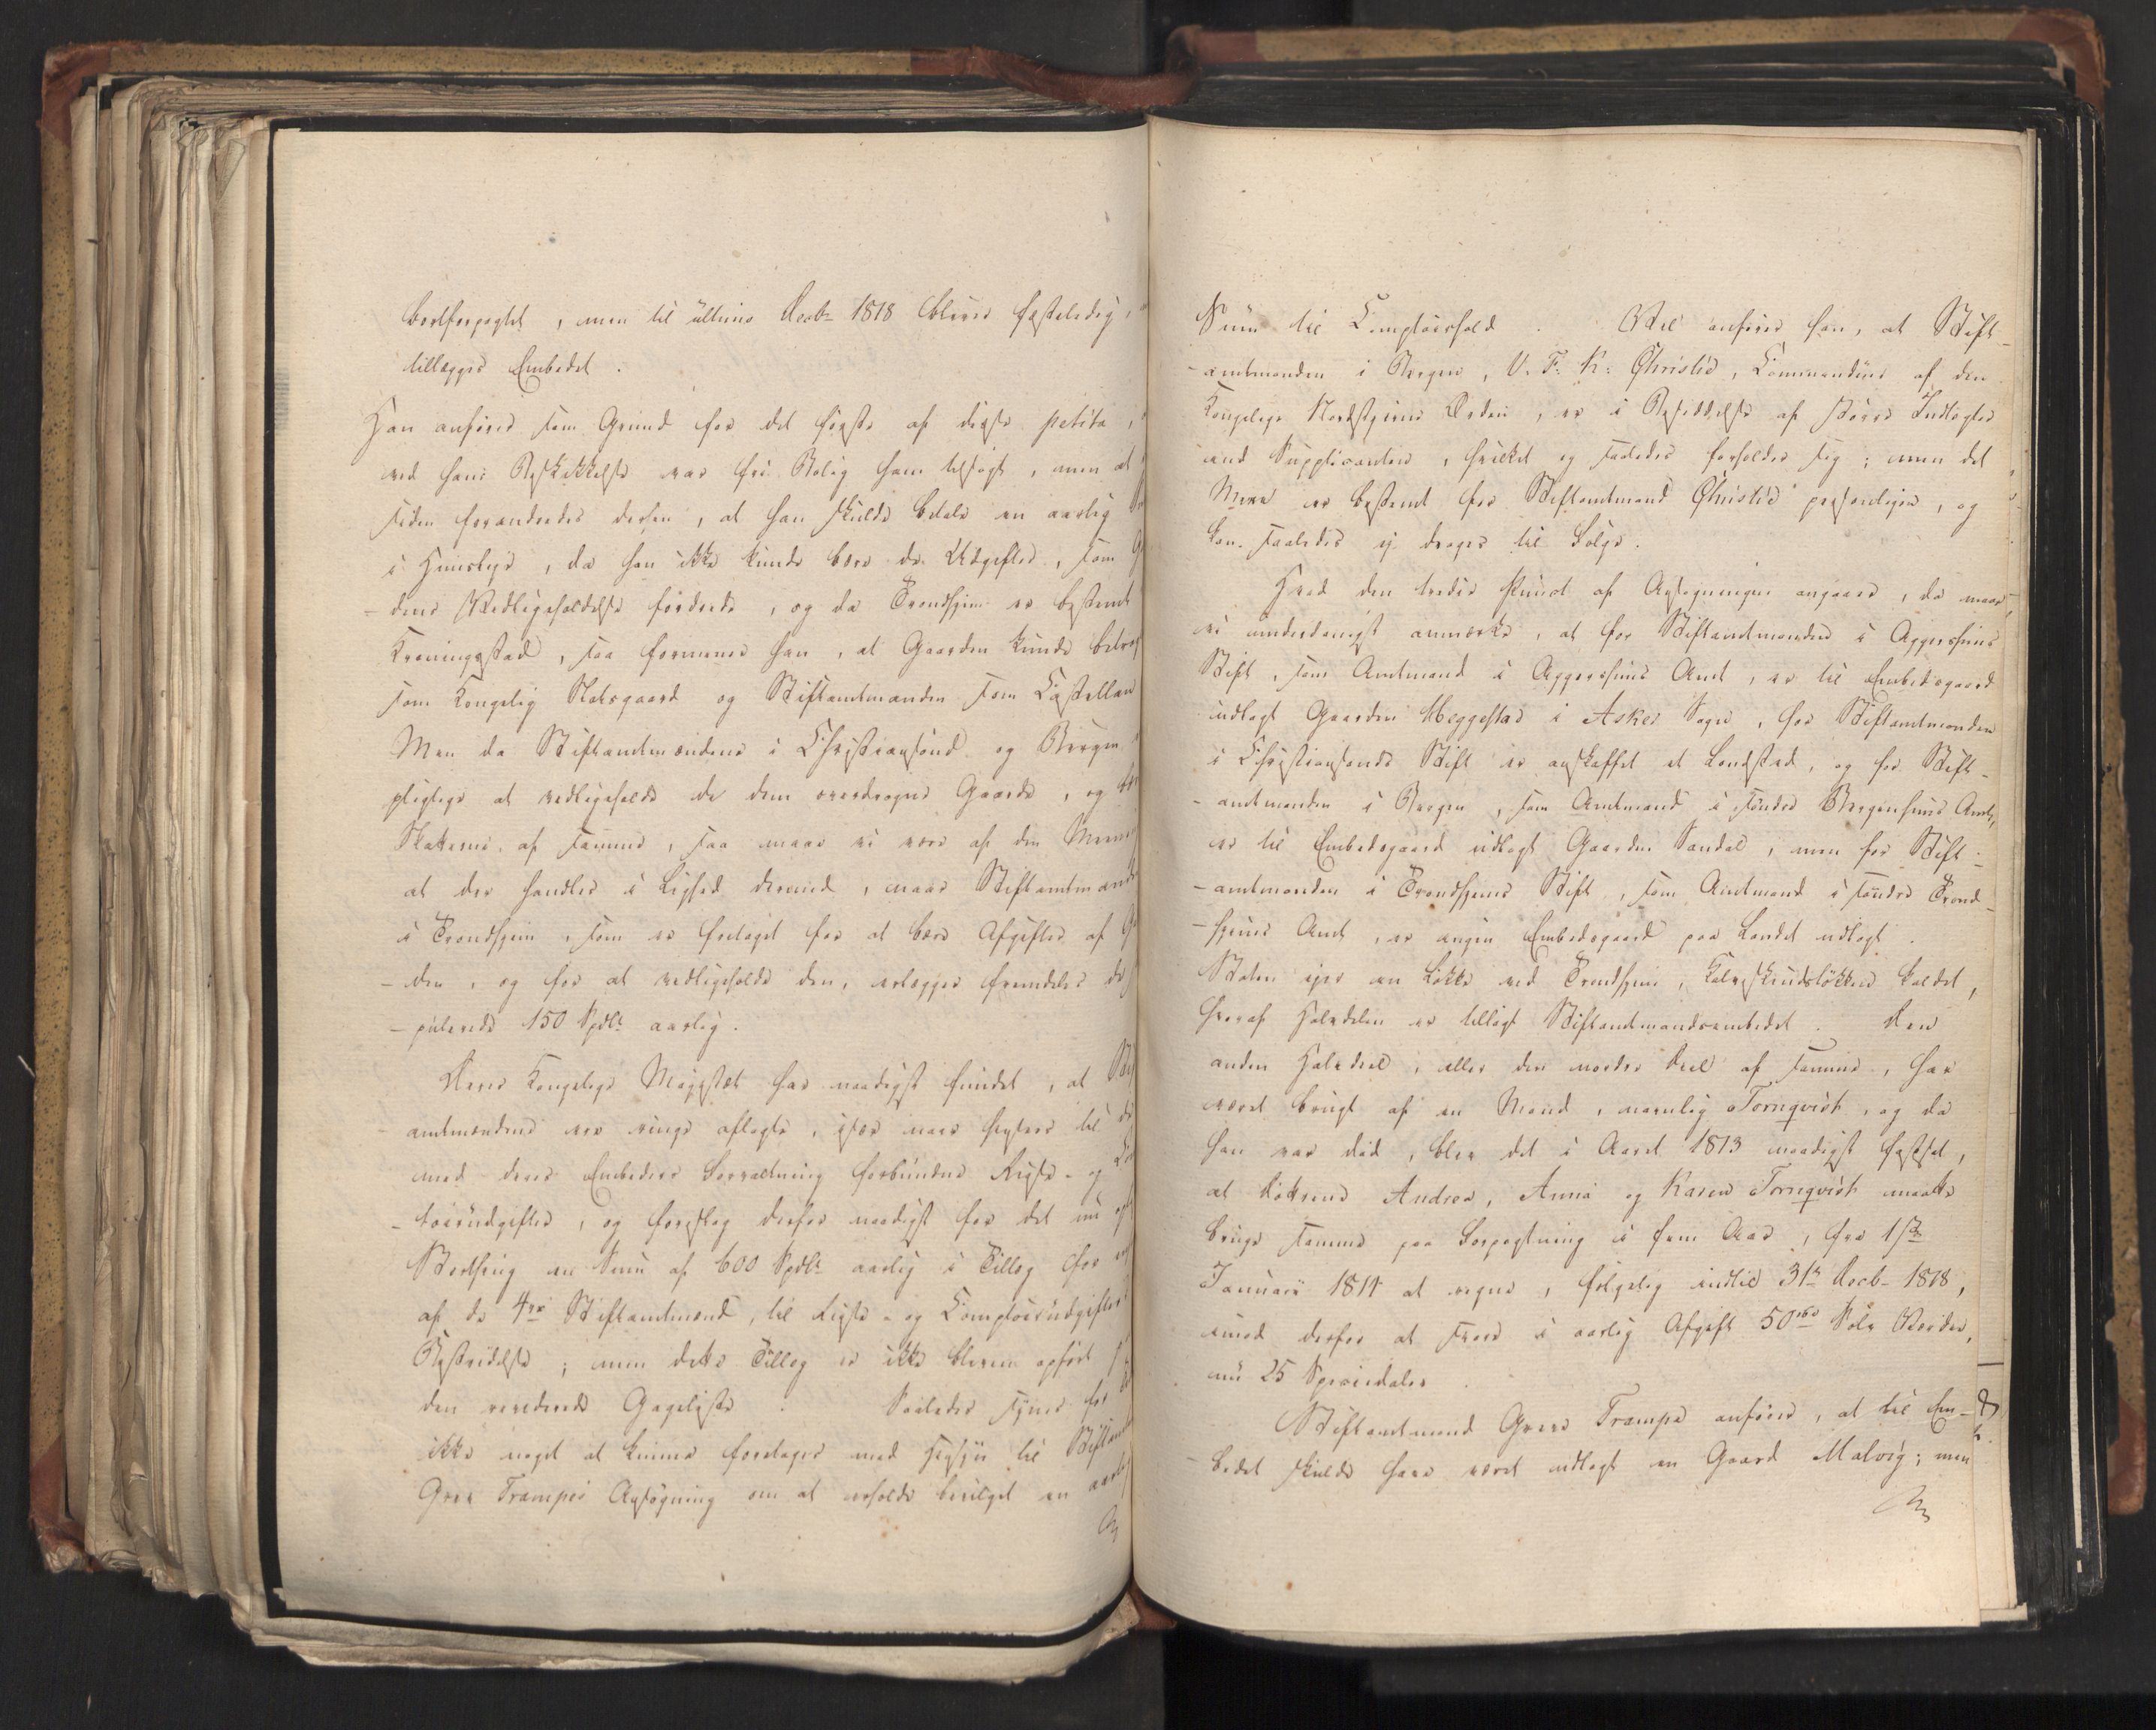 bortforpagtet, men til ultimo Decbr 1818 bliver fæsteledig,
tillægges Embedet.
Han anfører som Grund for det første af disse petita,
ved hans Beskikkelse var fri Bolig ham tilsagt, men at
siden forandredes derhen, at han skulde betale en aarlig
i Huusleye, da han ikke kunde bære de Udgifter, som
-dens Vedligeholdelse fordrede, og da Trondhjem er bestemt
Kroningsstad, saa formener han, at Gaarden kunde
som Kongelig Slotsgaard og Stiftamtmanden som Castellan
Men da Stiftamtmændene i Christiansand og Bergen
pligtige at vedligeholde de dem overdragne Gaarde, og
Skatterne af samme, saa maae vi være af den Mening
at der handles i Liighed dermed, naar Stiftamtmanden
i Trondhjem, som er fritaget for at bære Afgifter af
-den, og for at vedligeholde den, erlægger fremdeles
-pulerede 150 Spdlr aarlig.
Deres Kongelige Majestæt har naadigst fundet, at
amtmændene ere ringe aflagte, især naar hensees til
med deres Embeders Forvaltning forbundne Reise- og
-toirudgifter, og foreslog derfor naadigst for det nu
Storthing en Sum af 600 Spdlr aarlig i Tillæg for
af de 4re Stiftamtmænd, til Reise- og Comptoirudgifters
Bestridelse; men dette Tillæg er ikke bleven opført
den reviderede Gageliste. Saaledes synes for
ikke noget at kunne foretages med Hensyn til
Greve Trampes Ansøgning om at erholde bevilget en aarlig
Sum til Comptoirhold. Vel anfører han, at Stift-
-amtmanden i Bergen, V. F. K. Christie, Commandeur af den
Kongelige Nordstjerne Orden, er i Besiddelse af større Indtægter
end Supplicanten, hvilket og saaledes forholder sig; men det
Mere er bestemt for Stiftamtmand Christie personligen, og
kan saaledes ej drages til Følge.
Hvad den tredie Punct af Ansøgningen angaaer, da maae
vi underdanigst anmærke, at for Stiftamtmanden i Aggershuus
Stift, som Amtmand i Aggershuus Amt, er til Embedsgaard
udlagt Gaarden Heggestad i Asker Sogn, for Stiftamtmanden
i Christiansands Stift er anskaffet et Landsted, og for Stift-
-amtmanden i Bergen, som Amtmand i søndre Bergenhuus Amt,
er til Embedsgaard udlagt Gaarden Sandal, men for Stift-
-amtmanden i Trondhjems Stift, som Amtmand i søndre Trond-
-hjems Amt, er ingen Embedsgaard paa Landet udlagt.
Staten ejer en Løkke ved Trondhjem, Kalveskindsløkken kaldet,
hvoraf Halvdelen er tillagt Stiftamtmandsembedet. Den
anden Halvdeel, eller den nordre Deel af samme, har
været brugt af en Mand, navnlig Tornqvist, og da
han var død, blev det i Aaret 1813 naadigst fastsat,
at Døttrene Andrea, Anna og Karen Tornqvist maatte
bruge samme paa Forpagtning i fem Aar, fra 1ste
Januarii 1814 at regne, følgelig indtil 31te Decbr 1818,
imod derfor at svare i aarlig Afgift 50 rbd Sølv Værdie,
nu 25 Speciedaler.
Stiftamtmand Greve Trampe anfører, at til Em-
-bedet skulde have været udlagt en Gaard Malvig; men